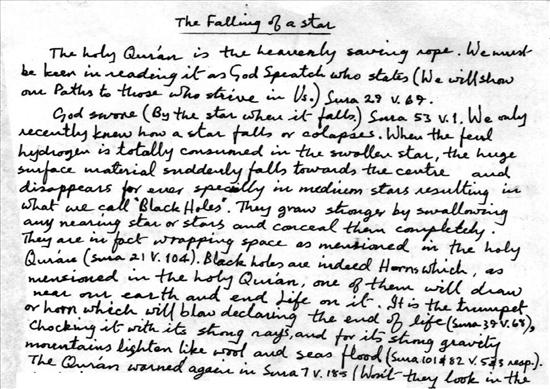 The Falling of a star
The holy Qur'an is the heavenly saving rope. We must
be keen in reading it as God Speatch who states (We will show
our Paths to those who strive in Us.) Sura 29 V. 69.
God swore (By the star when it falls.) Sura 53 V. 1. We only
recently knew how a star falls or colapses. When the feul
hydrogen is totally consumed in the swollen star, the huge
surface material suddenly falls towards the centre and
disappears for ever specially in medium stars resulting in
what we call "Black Holes". They grow stronger by swallowing
any nearing star or stars and conceal them completely.
They are in fact wrapping space as mentioned in the holy
Quran (Sura 21 V. 104). Black holes are indeed Horns which, as
mencioned in the holy Qurán, one of them will draw
near our earth and end life on it. It is the trumpet
or horn which will blow declaring the end of life (Sura 39 V. 68),
chocking it with its strong rays, and for its strong gravity
mountains lighten like wool and seas flood (Sura 101 & 82 V. 5 & 3 resp.).
The Qurán warned again in Sura 7 V. 185 (Won't they look in the